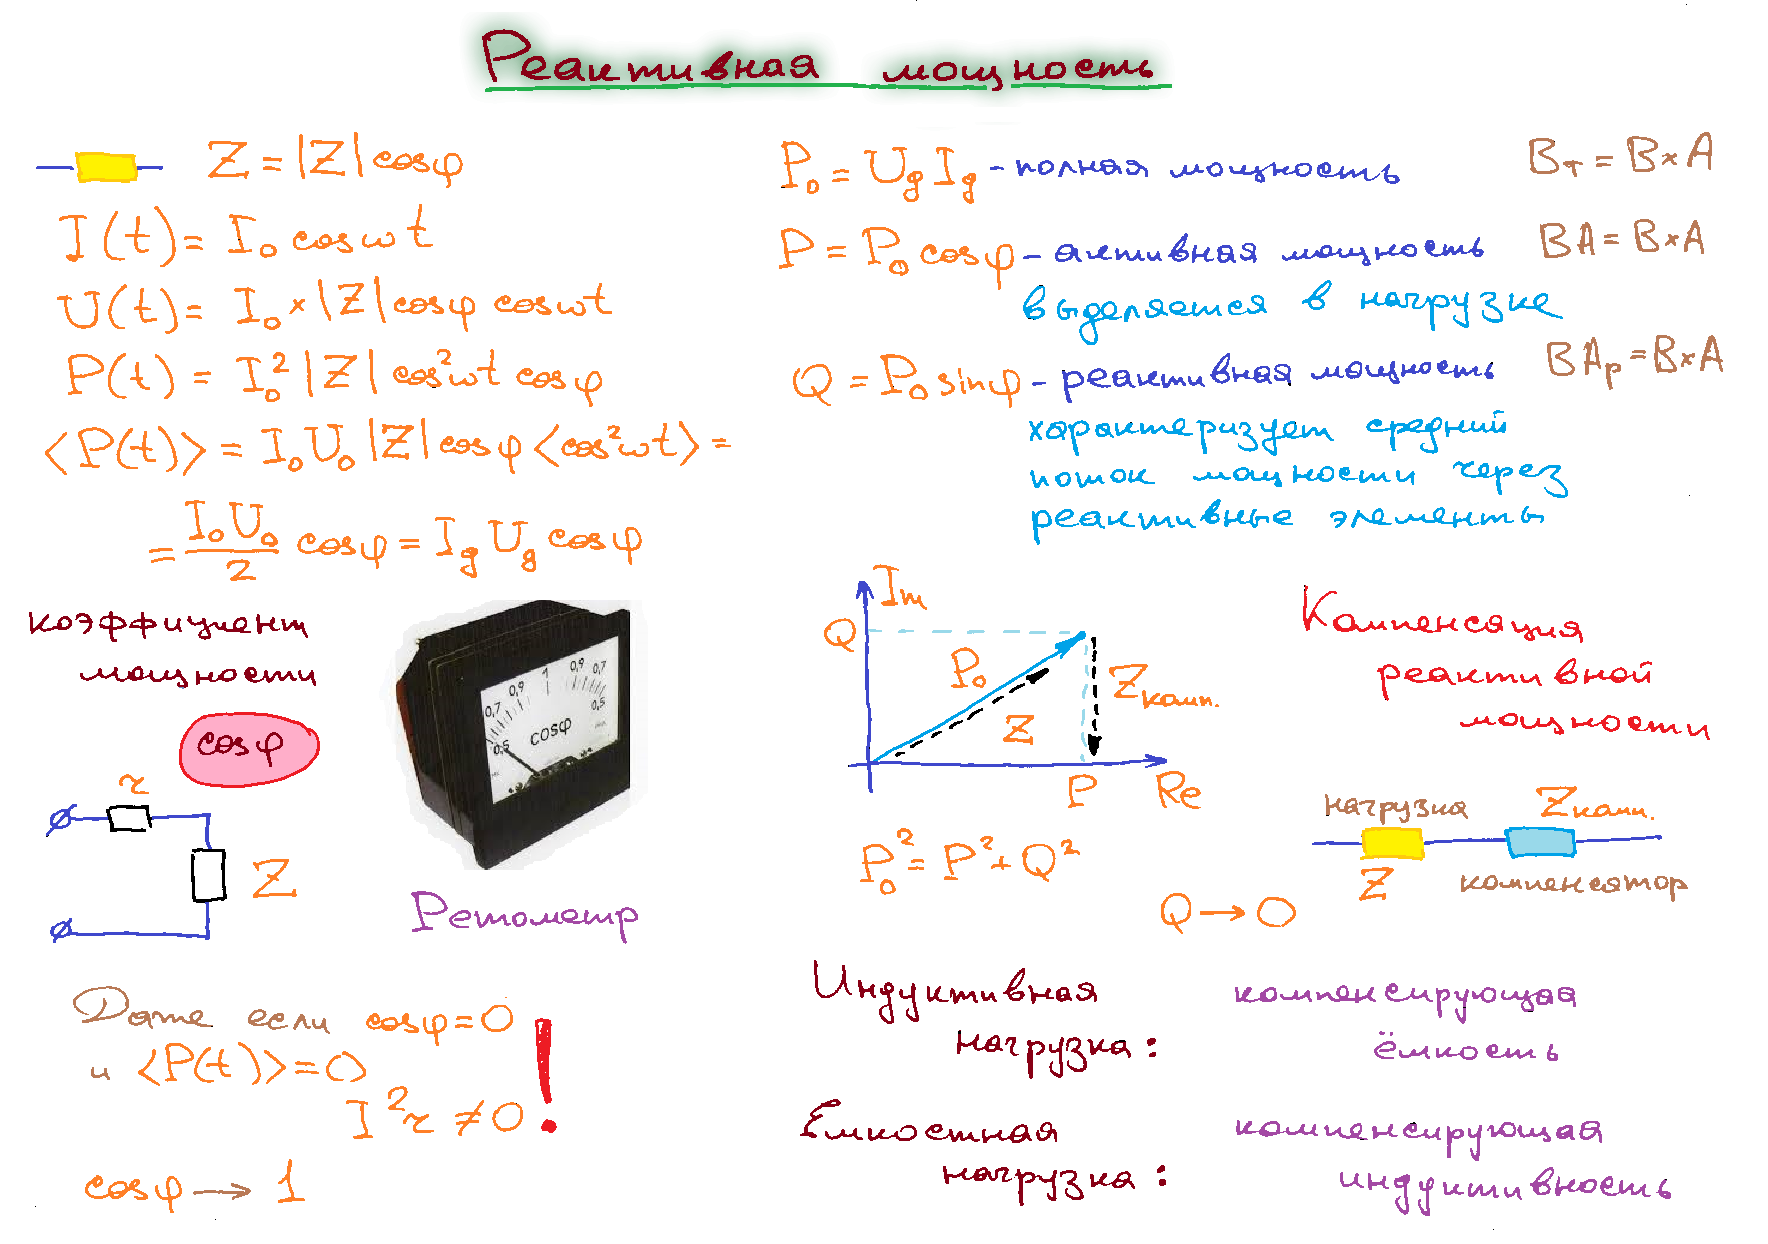 Реактивная мощность
Z = |Z| cosφ
I(t) = I₀ cosωt
U(t) = I₀ × |Z| cosφ cosωt
P(t) = I₀² |Z| cos²ωt cosφ
<P(t)> = I₀U₀ |Z| cosφ <cos²ωt> =
= I₀U₀/2 cosφ = Ig Ug cosφ
коэффициент
мощности
cosφ
r
Z
0,5 0,7 0,9 1 0,9 0,7 0,5
cosφ
Ретометр
Даже если cosφ = 0
и <P(t)> = 0
I²r ≠ 0 !
cosφ → 1
P₀ = Ug Ig - полная мощность
Вт = В×А
P = P₀ cosφ - активная мощность
ВА = В×А
выделяется в нагрузке
Q = P₀ sinφ - реактивная мощность
ВАр = В×А
характеризует средний
поток мощности через
реактивные элементы
Im
Q
P₀
Z
Zкомп.
P
Re
P₀² = P² + Q²
Компенсация
реактивной
мощности
нагрузка
Zкомп.
Z
компенсатор
Q → 0
Индуктивная
нагрузка:
компенсирующая
ёмкость
Емкостная
нагрузка:
компенсирующая
индуктивность